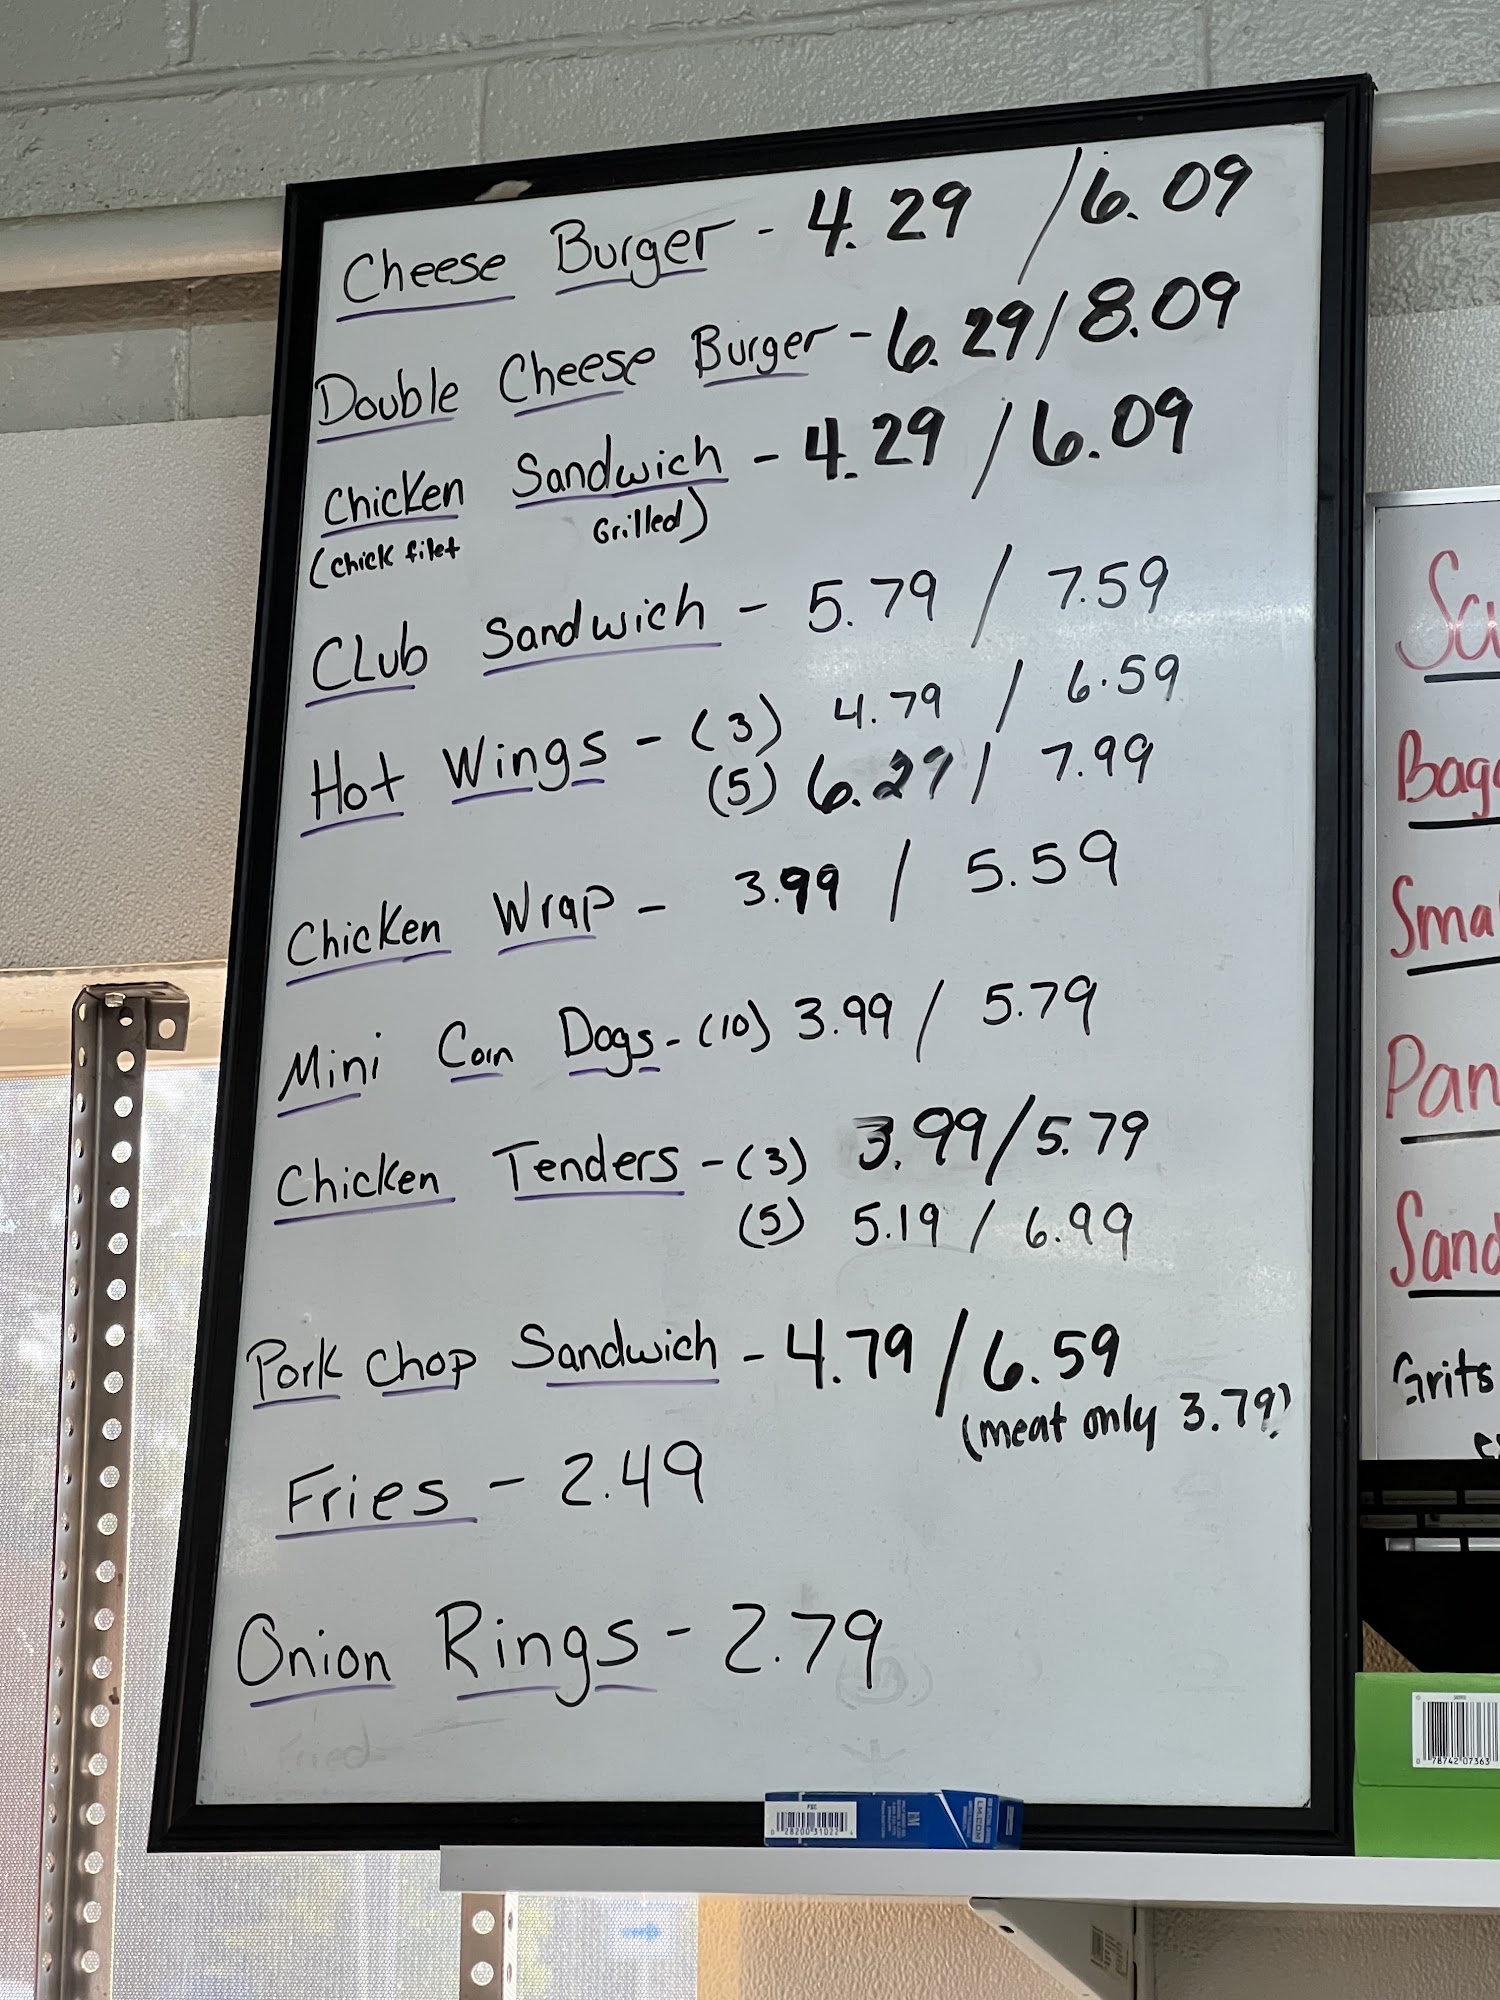 Cheese Burger - 4.29 / 6.09
Double Cheese Burger - 6.29 / 8.09
Chicken Sandwich - 4.29 / 6.09
(chick filet Grilled)
CLub Sandwich - 5.79 / 7.59
Hot Wings - (3) 4.79 / 6.59
(5) 6.29 / 7.99
Chicken Wrap - 3.99 / 5.59
Mini Corn Dogs - (10) 3.99 / 5.79
Chicken Tenders - (3) 3.99 / 5.79
(5) 5.19 / 6.99
Pork Chop Sandwich - 4.79 / 6.59
(meat only 3.79)
Fries - 2.49
Onion Rings - 2.79
Bag
Sma
Pan
Sand
Grits